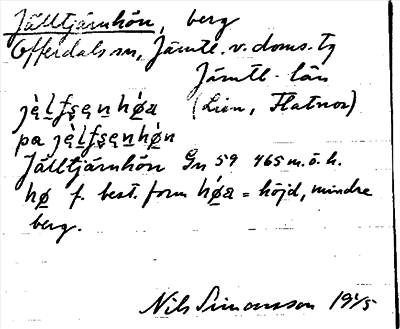 Jälltjärnhön, berg
Offerdals sn, Jämtl. v. doms. tg
Jämtl. län
(Lien, Flatnor)
jè̀lfsęn hø̀a
pa jè̀lfsęnhø̀n
Jälltjärnhön Gn 59 465 m. ö. h.
hø f. best. form hø̀a = höjd, mindre
berg.
Nils Simonsson 19